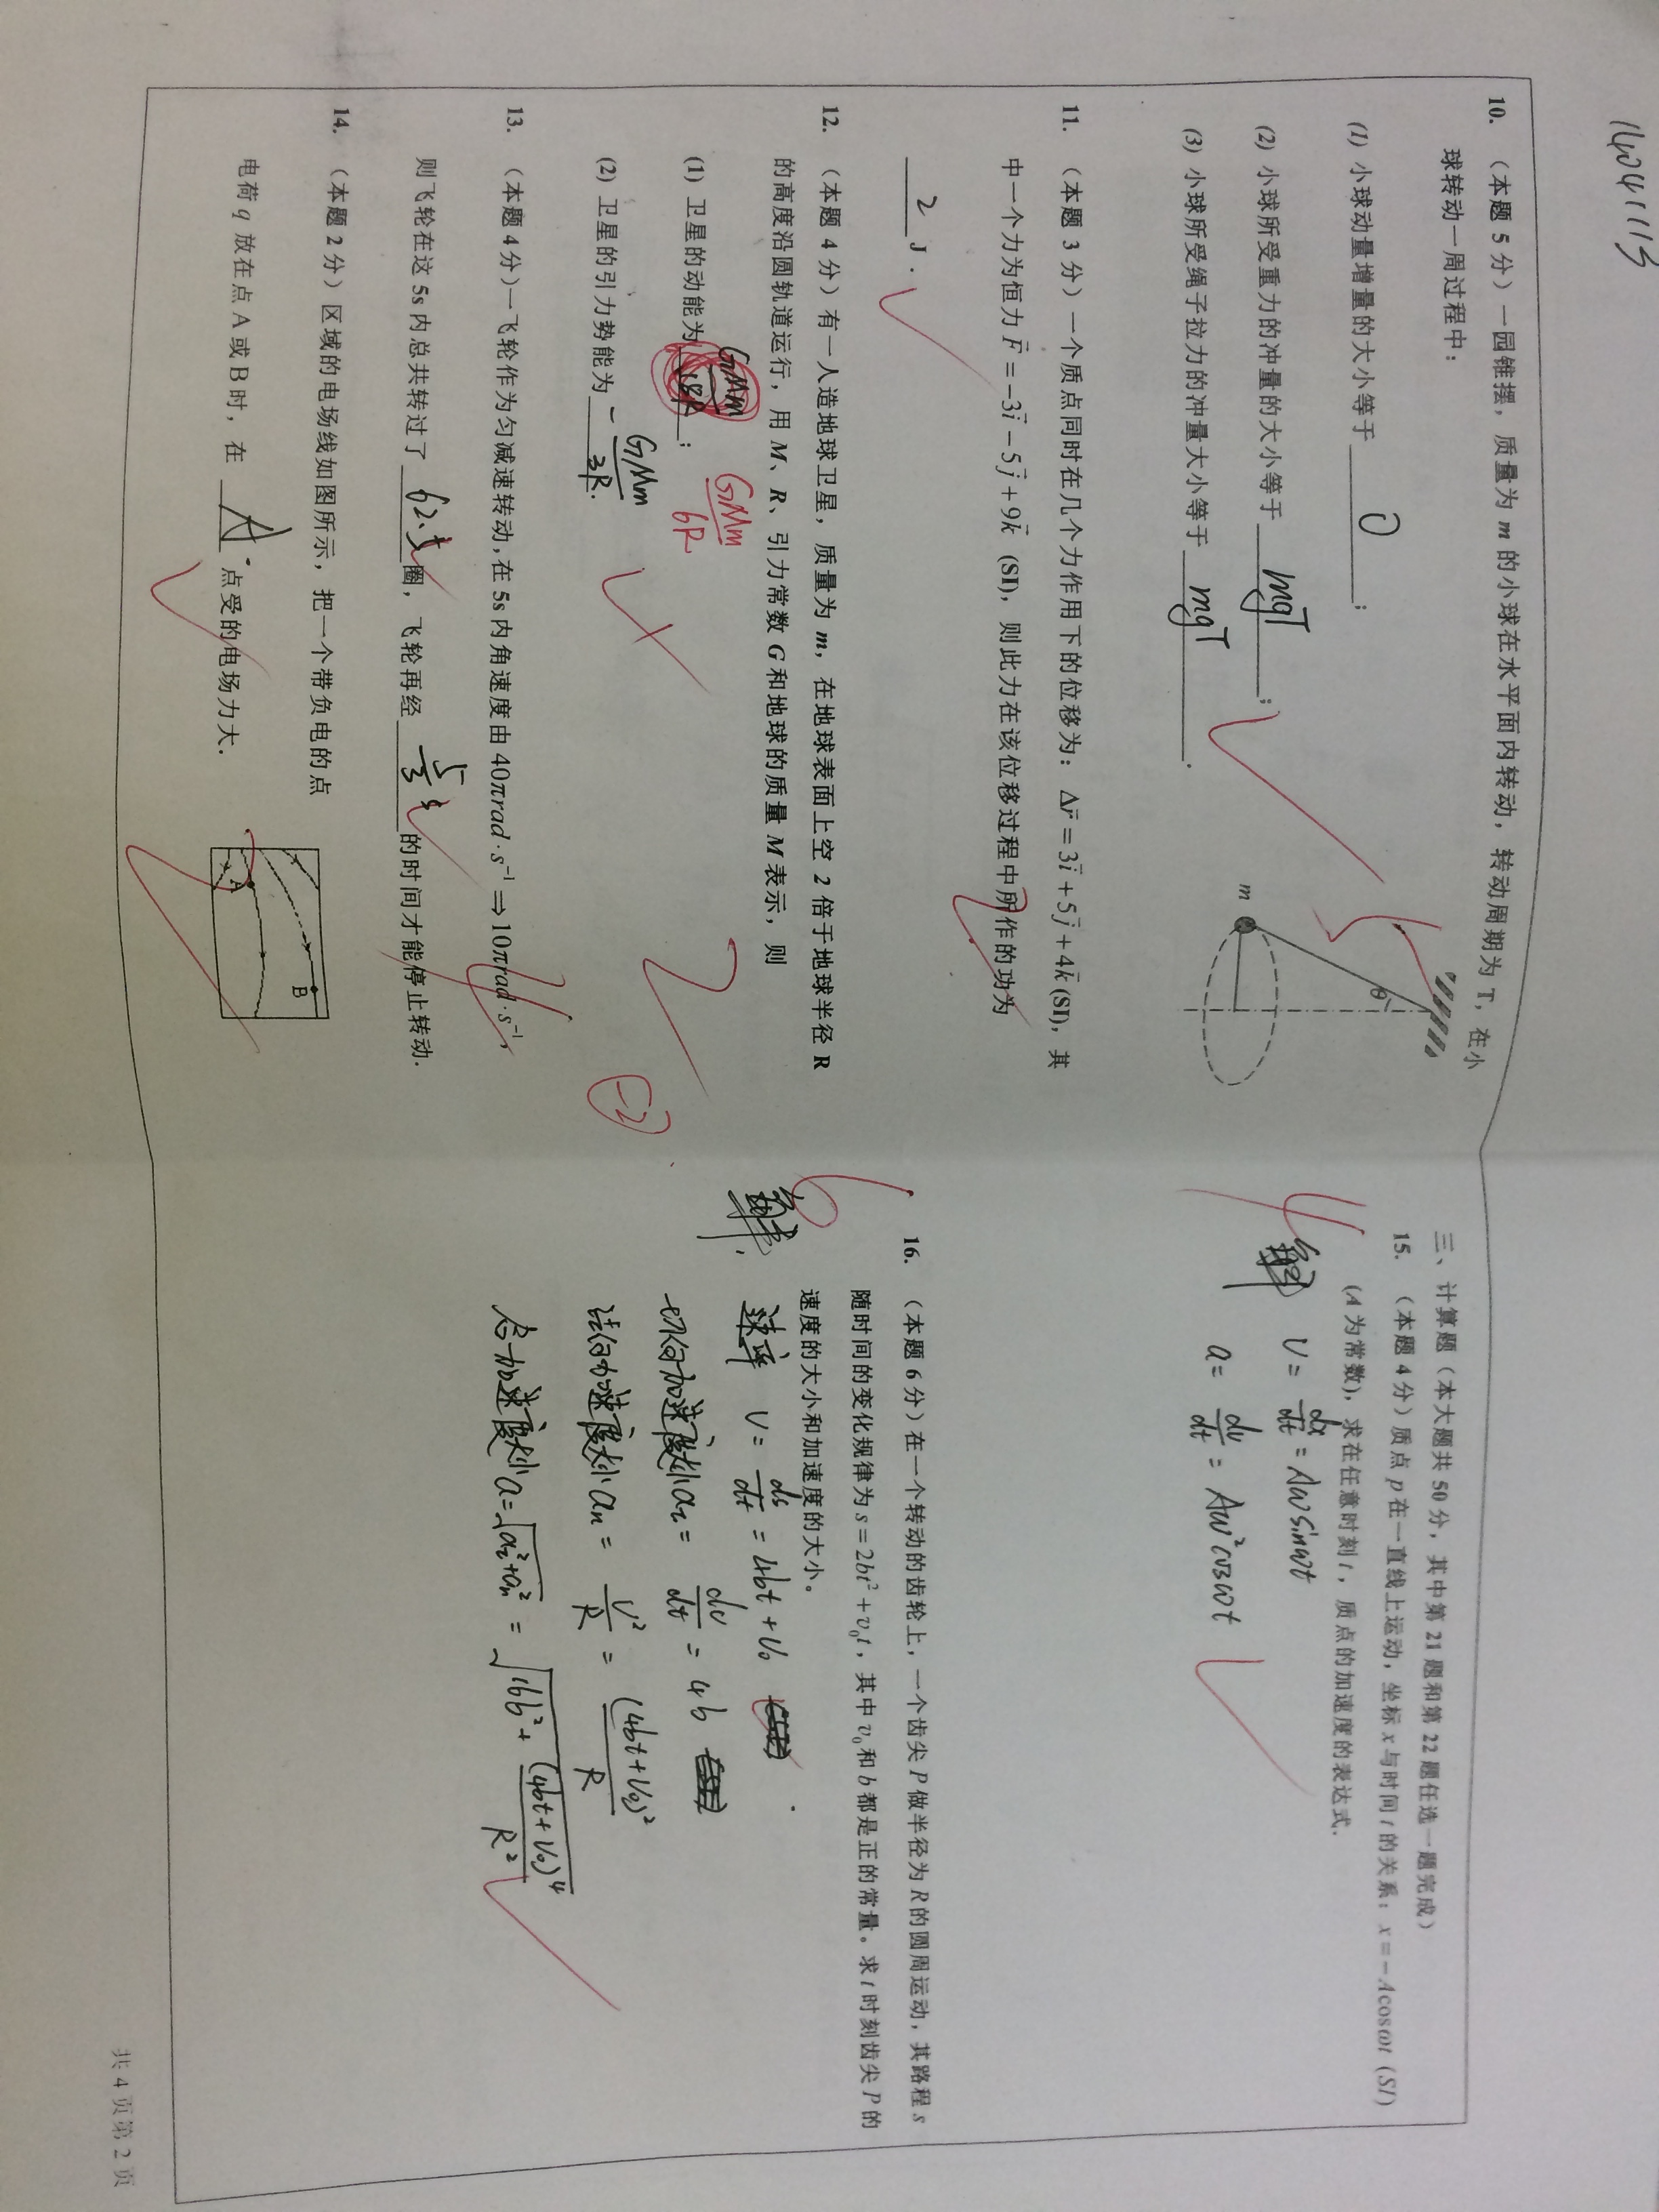 1404113
10. （本题 5 分）一园锥摆，质量为 m 的小球在水平面内转动，转动周期为 T，在小
球转动一周过程中：
(1) 小球动量增量的大小等于 0 ；
(2) 小球所受重力的冲量的大小等于 mgT ；
(3) 小球所受绳子拉力的冲量大小等于 mgT .
m
θ
5
11. （本题 3 分）一个质点同时在几个力作用下的位移为： Δr⃗ = 3i⃗ + 5j⃗ + 4k⃗ (SI)，其
中一个力为恒力 F⃗ = −3i⃗ − 5j⃗ + 9k⃗ (SI)，则此力在该位移过程中所作的功为
2 J .
12. （本题 4 分）有一人造地球卫星，质量为 m，在地球表面上空 2 倍于地球半径 R
的高度沿圆轨道运行，用 M、R、引力常数 G 和地球的质量 M 表示，则
(1) 卫星的动能为 GMm/18R ； GMm/6R
(2) 卫星的引力势能为 −GMm/3R .
2
-2
13. （本题 4 分）一飞轮作为匀减速转动，在 5s 内角速度由 40πrad·s⁻¹ ⇒ 10πrad·s⁻¹，
则飞轮在这 5s 内总共转过了 62.5 圈，飞轮再经 5/3 s 的时间才能停止转动.
4
14. （本题 2 分）区域的电场线如图所示，把一个带负电的点
电荷 q 放在点 A 或 B 时，在 A 点受的电场力大.
A
B
2
三、计算题（本大题共 50 分，其中第 21 题和第 22 题任选一题完成）
15. （本题 4 分）质点 p 在一直线上运动，坐标 x 与时间 t 的关系：x = −Acosωt (SI)
(A 为常数)，求在任意时刻 t，质点的加速度的表达式.
4
解 v = dx/dt = Aω sinωt
a = dv/dt = Aω²cosωt
16. （本题 6 分）在一个转动的齿轮上，一个齿尖 P 做半径为 R 的圆周运动，其路程 s
随时间的变化规律为 s = 2bt² + v₀t，其中 v₀ 和 b 都是正的常量。求 t 时刻齿尖 P 的
速度的大小和加速度的大小。
6
解. 速率 v = ds/dt = 4bt + v₀
切向加速度大小 aτ = dv/dt = 4b
法向加速度大小 an = v²/R = (4bt+v₀)²/R
总加速度大小 a = √(aτ²+an²) = √(16b² + (4bt+v₀)⁴/R²)
共 4 页第 2 页